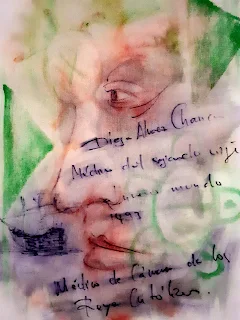 Diego Alvarez Chanca
Médico del segundo viaje
nuevo mundo
1493
Médico de Cámara de los
Reyes Católicos.